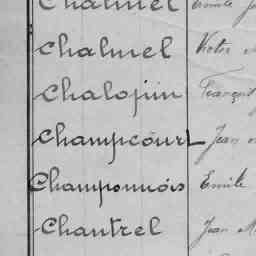 Chalmel Emile
Chalmel Victor
Chalopin François
Champcourt Jean
Champonnois Emile
Chantrel Jean M